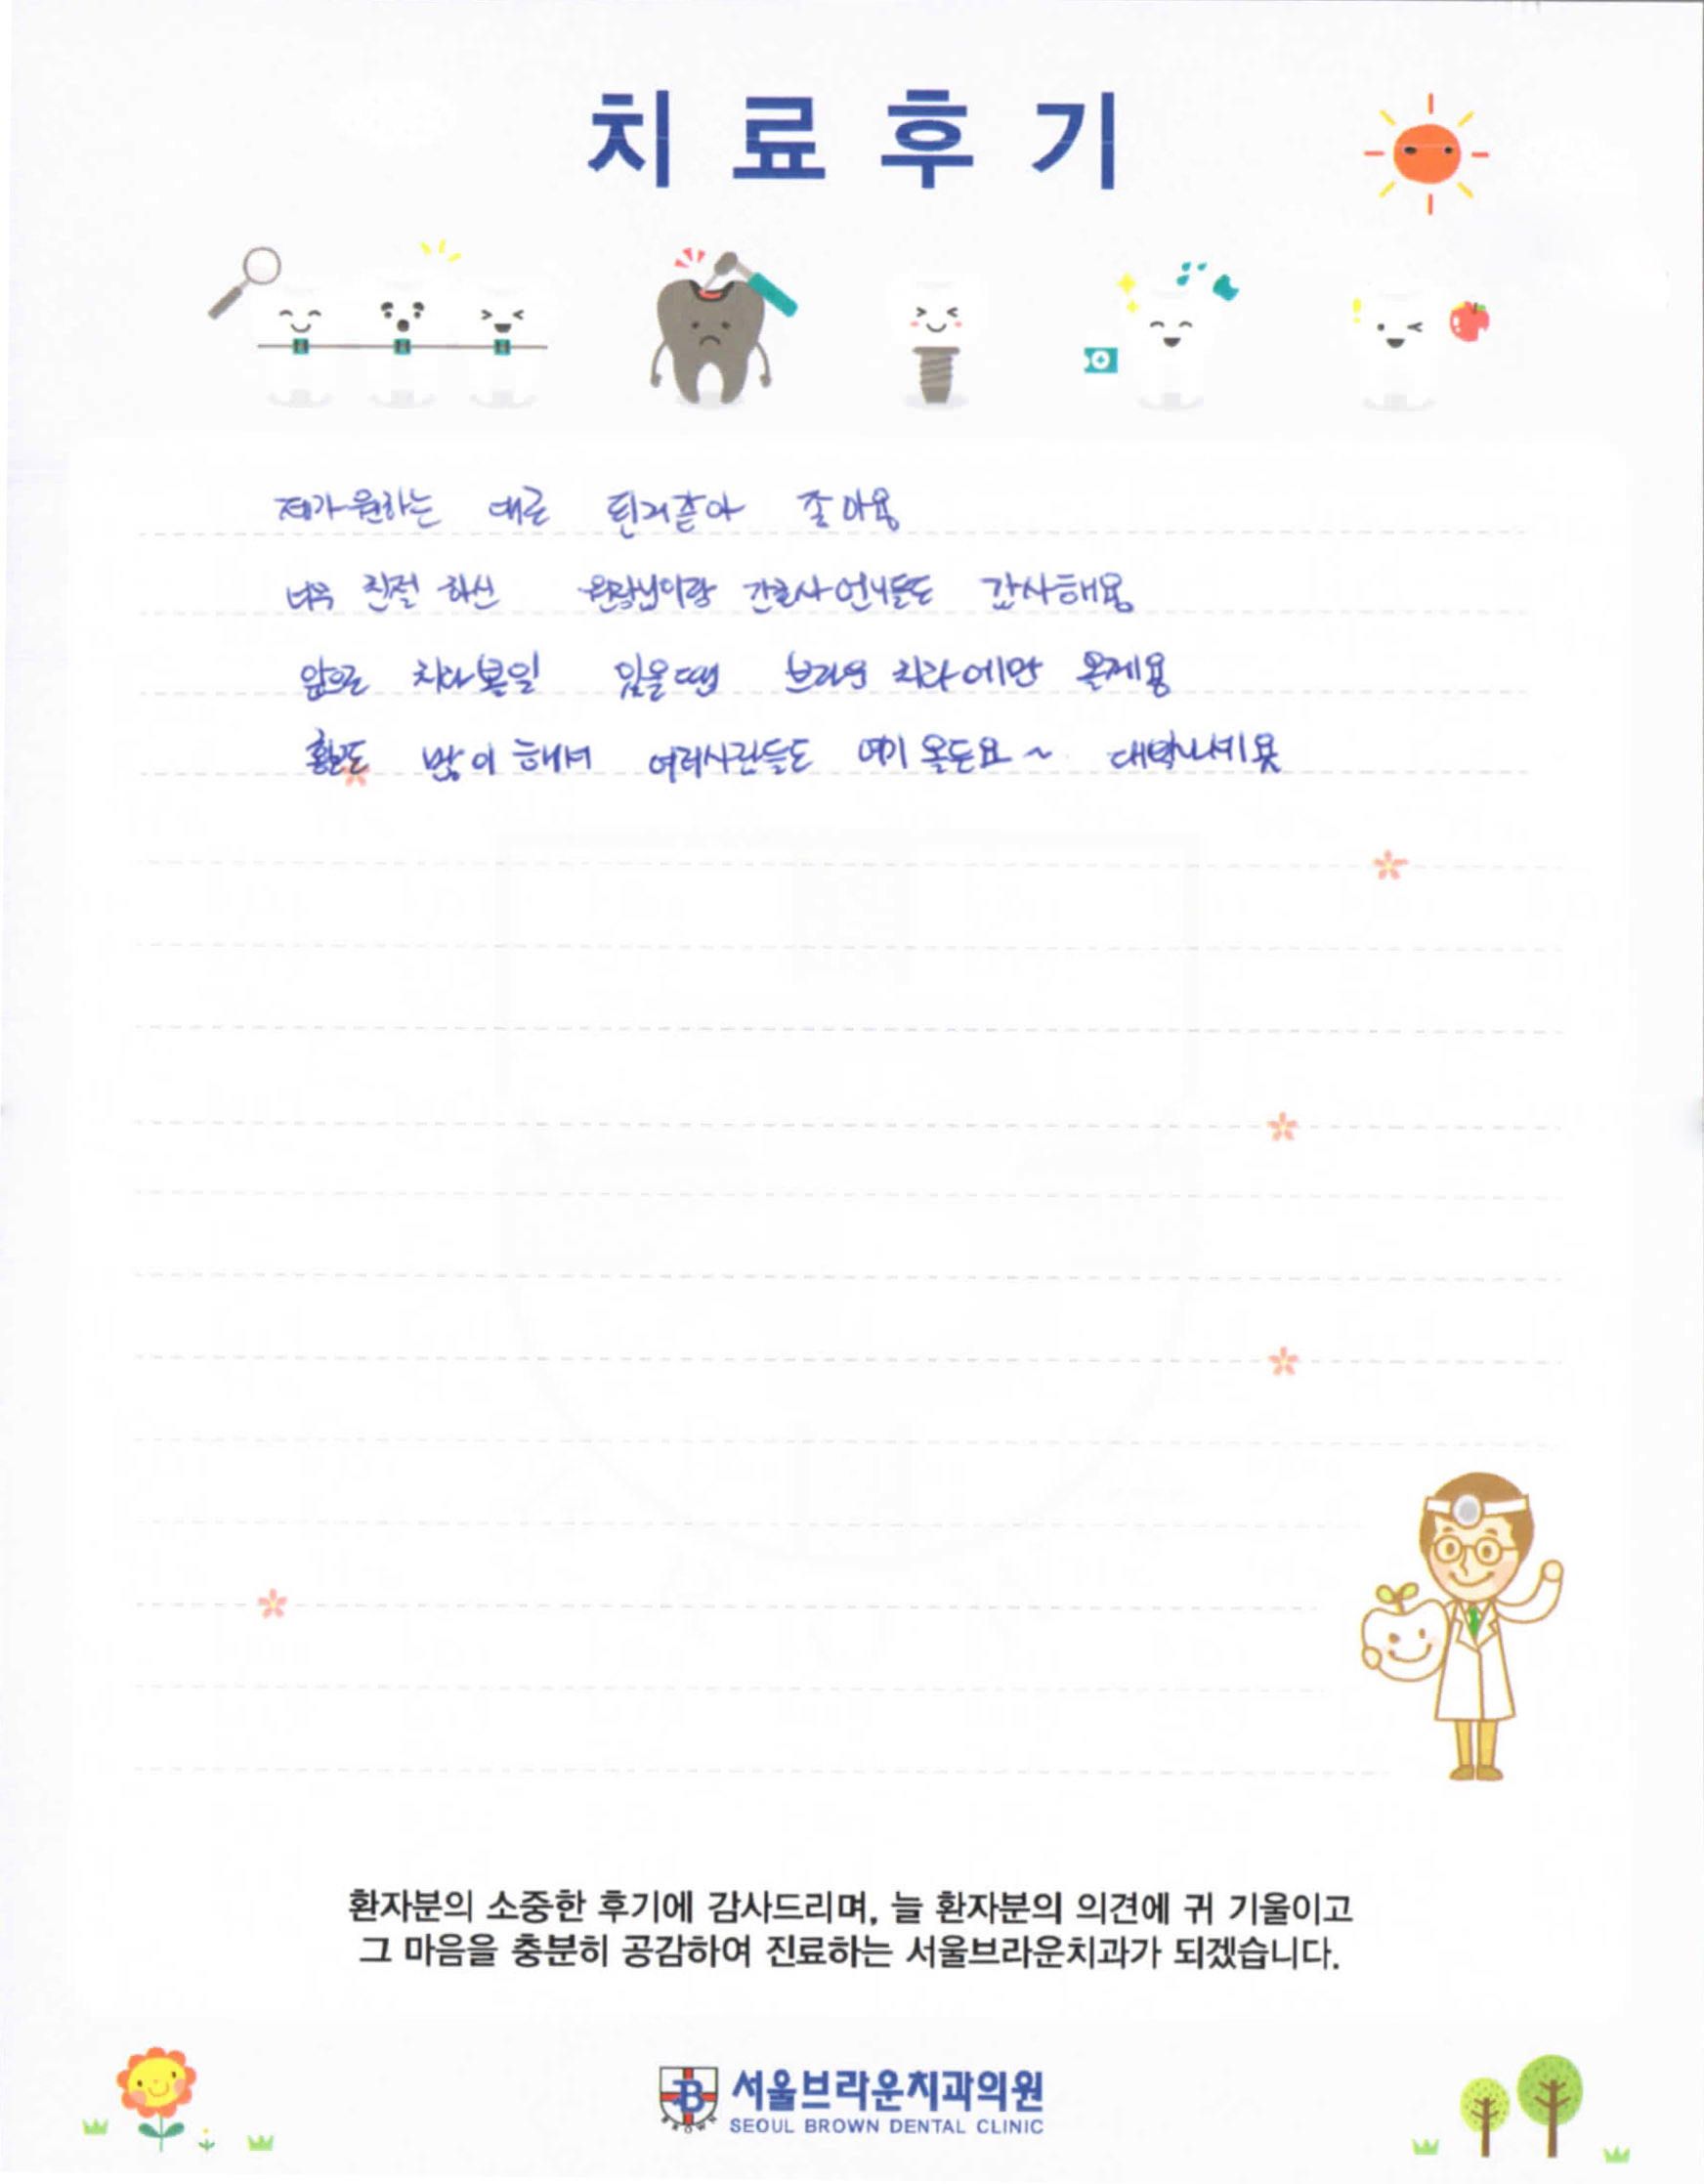 치료후기
제가 원하는 대로 된거같아 좋아용
너무 친절 하신 원장님이랑 간호사 언니들도 감사해용
앞으로 치과 볼일 있을땐 브라운 치과에만 올게용
홍보도 많이 해서 여러사람들도 여기 올든요~ 대박나세욧
환자분의 소중한 후기에 감사드리며, 늘 환자분의 의견에 귀 기울이고
그 마음을 충분히 공감하여 진료하는 서울브라운치과가 되겠습니다.
B
서울브라운치과의원
SEOUL BROWN DENTAL CLINIC